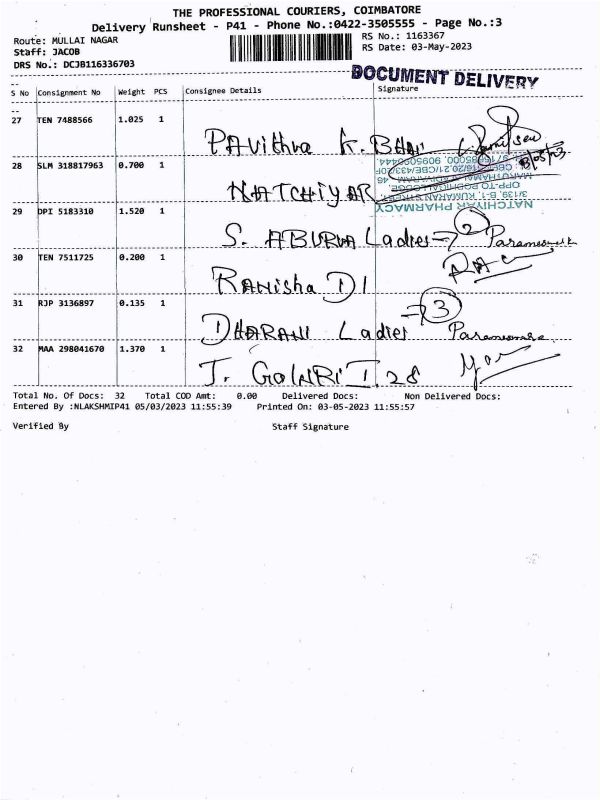 THE PROFESSIONAL COURIERS, COIMBATORE
Delivery Runsheet - P41 - Phone No.:0422-3505555 - Page No.:3
Route: MULLAI NAGAR
Staff: JACOB
DRS No.: DCJB116336703
RS No.: 1163367
RS Date: 03-May-2023
DOCUMENT DELIVERY
S No Consignment No Weight PCS Consignee Details Signature
27 TEN 7488566 1.025 1
Pavithra K. Bhai
28 SLM 318817963 0.700 1
NATCHIYAR
NATCHIYAR PHARMACY
29 DPI 5183310 1.520 1
S. ABURVA Ladies → 2
30 TEN 7511725 0.200 1
RANisha DI
31 RJP 3136897 0.135 1
DHARANI Ladies → 3
32 MAA 298041670 1.370 1
J. GOWRI I. 28
Total No. Of Docs: 32 Total COD Amt: 0.00 Delivered Docs: Non Delivered Docs:
Entered By :NLAKSHMIP41 05/03/2023 11:55:39 Printed On: 03-05-2023 11:55:57
Verified By Staff Signature